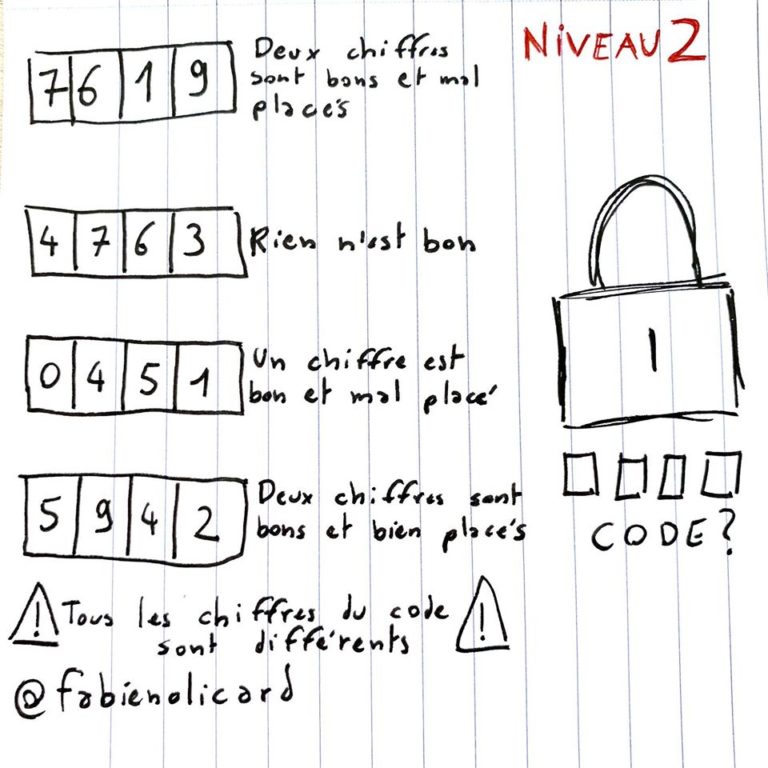 NIVEAU 2
7 6 1 9
Deux chiffres
sont bons et mal
placés
4 7 6 3
Rien n'est bon
0 4 5 1
Un chiffre est
bon et mal placé
5 9 4 2
Deux chiffres sont
bons et bien placés
! Tous les chiffres du code !
sont différents
@fabienolicard
CODE?